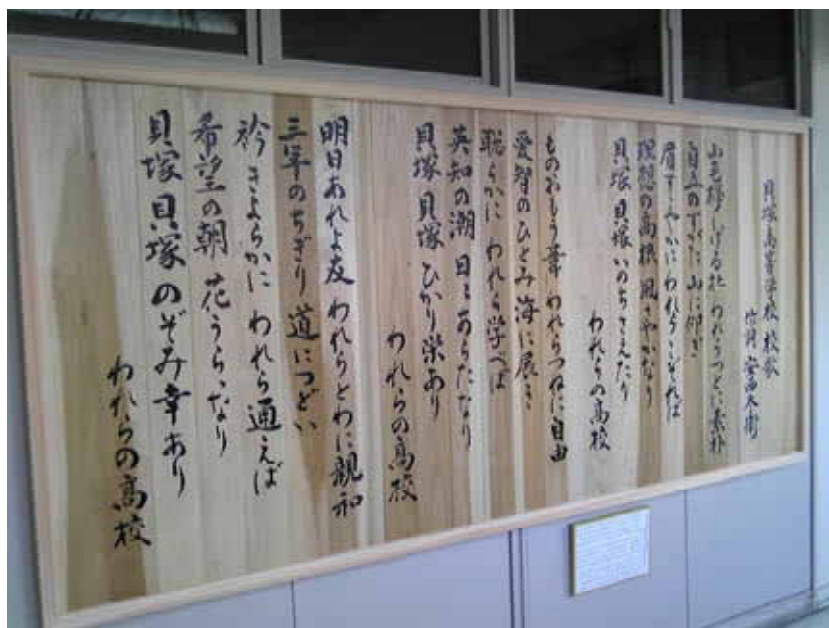 貝塚高等学校 校歌
作詞 安西冬衛
山毛欅しげる杜 われらつねに素朴
自立のすがた 山に仰ぎ
眉すこやかに われらこぞれば
理想の高根 風さやかなり
貝塚 貝塚 いのちさえたり
われらの高校
ものおもう葦 われらつねに自由
愛智のひとみ 海に展き
聡らかに われら学べば
英知の潮 日々あらたなり
貝塚 貝塚 ひかり栄あり
われらの高校
明日あれよ友 われらとわに親和
三年のちぎり 道につどい
衿きよらかに われら通えば
希望の朝 花うらゝなり
貝塚 貝塚 のぞみ幸あり
われらの高校